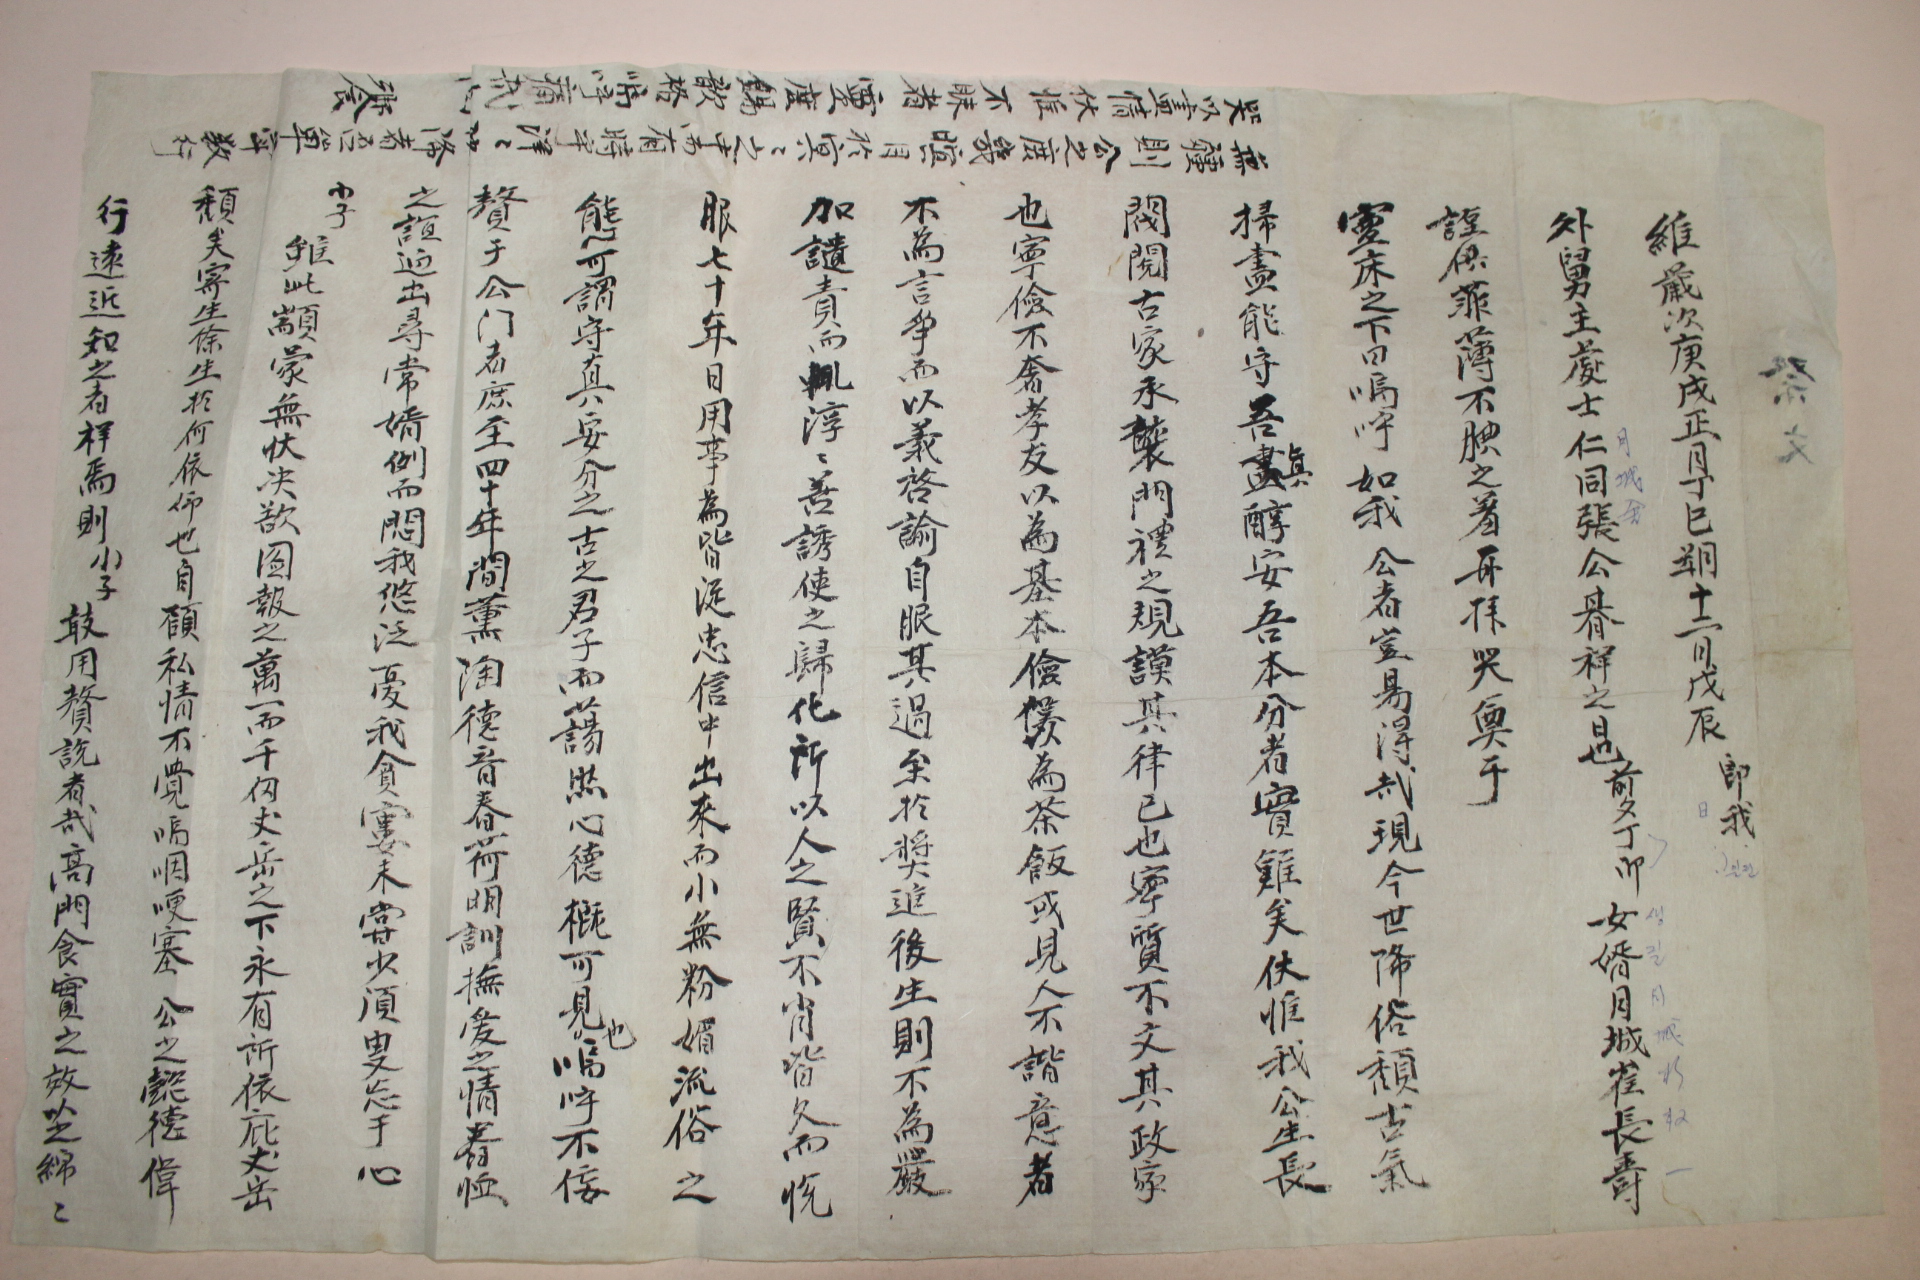 祭文
維歲次庚戌正月丁巳朔十二日戊辰 卽我
外舅主處士仁同張公朞祥之日也 前夕丁卯 女婿月城崔長壽
謹供菲薄不腆之羞再拜哭奠于
靈床之下曰嗚呼 如我 公者豈易得哉現今世降俗頹古氣
掃盡能守吾眞醇安吾本分者實難矣伏惟我公生長
閥閱古家承襲門禮之規謨其律己也寧質不文其政家
也寧儉不奢孝友以為基本儉 為茶飯或見人不諧意者
不為言爭而以義啓諭自服其過至於奬進後生則不為嚴
加譴責而 淳〻善誘使之歸化所以人之賢不肖皆久而悅
服七十年日用事為皆從忠信中出來而小無粉媚流俗之
態可謂守真安分之古之君子而蕩然心德槪可見也嗚呼不侫
贅于公门者庶至四十年間薰陶德音春荷明訓撫愛之情眷恤
之誼逈出尋常婿例而悶我悠泛憂我貧窶未嘗少須臾忘于心
小子 雖此顓蒙無狀决欲图報之萬一而千仞丈岳之下永有所依庇丈岳
頹矣寄生餘生於何依仰也自顧私情不覺嗚咽哽塞 公之懿德偉
行遠近知之者祥焉則小子 敢用贅説者哉高門食實之效 綿〻
無彊則公之庶幾 月於冥〻之中而有時乎洋〻如降者否 單辞數行
哭以盡情伏惟不昧者靈庶賜歆格嗚呼痛哉
尙食
月城 日